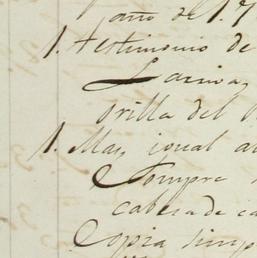 año de 17
1. Testimonio de
orilla del
1. Mas, igual a
Compra
cabesa de ca
Copia simp